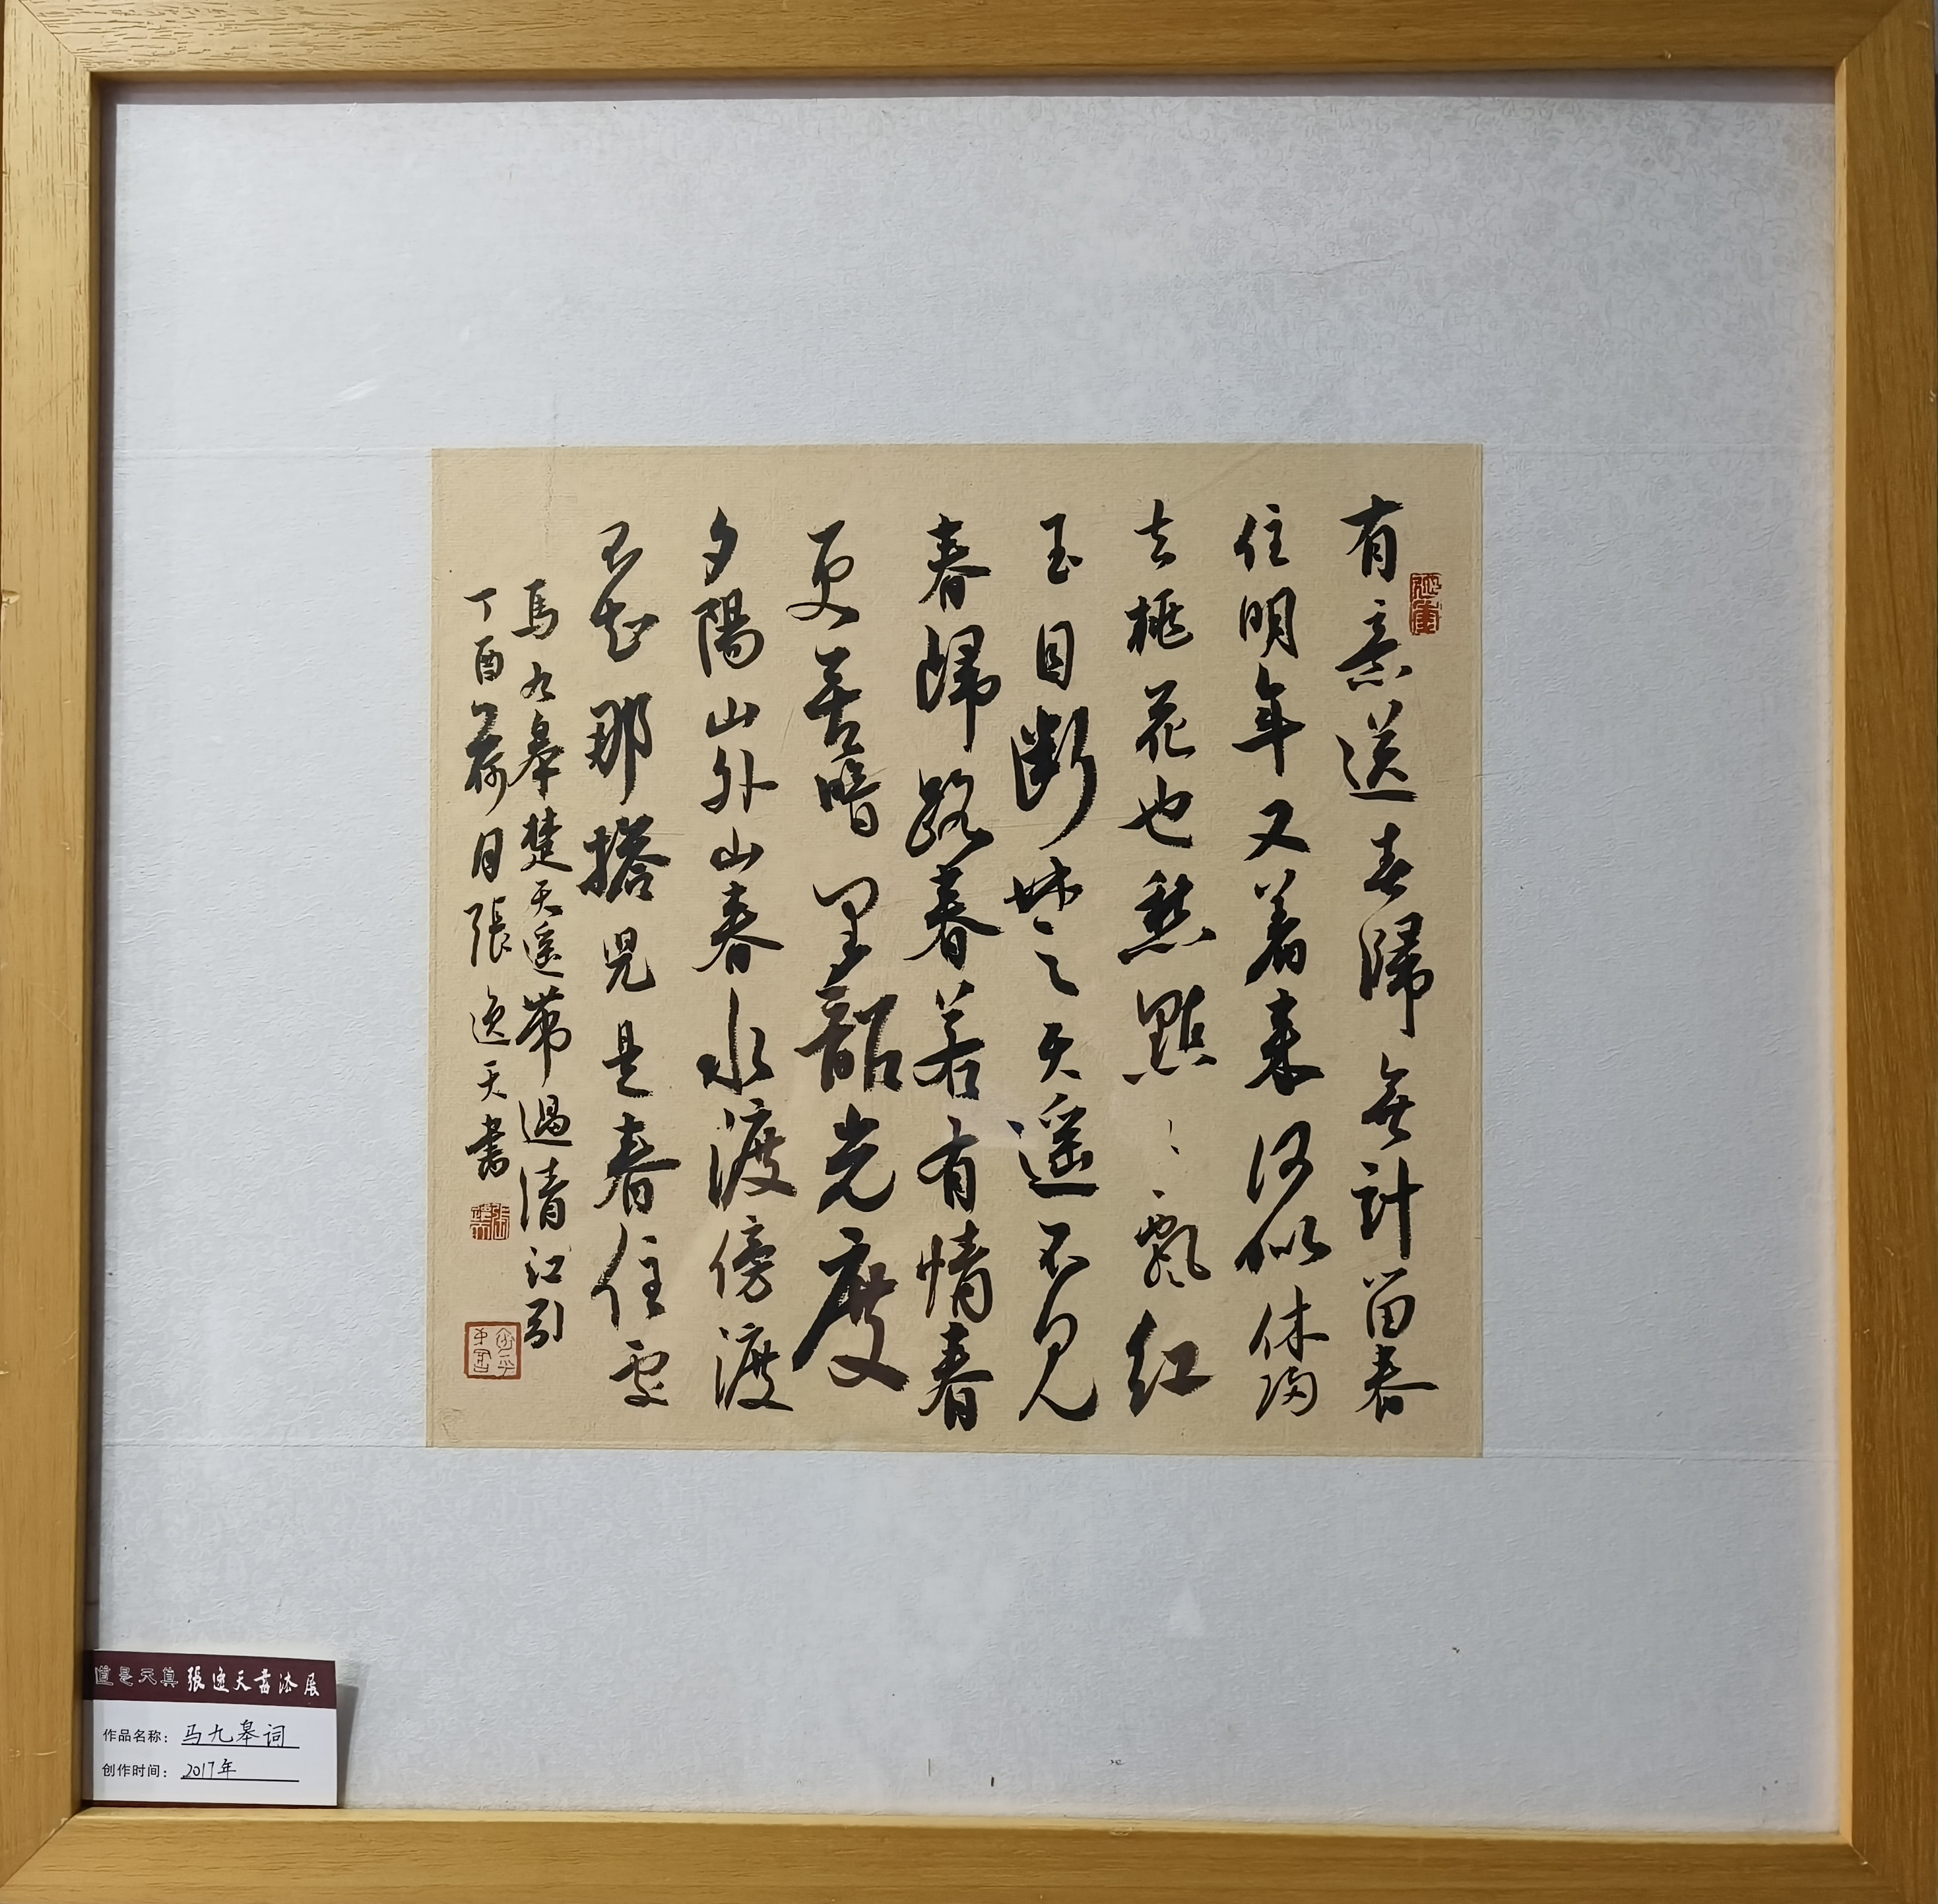 有意送春歸無計留春
住明年又着来何似休歸
去桃花也愁點〻飄紅
玉目断楚天遥不見
春歸路春若有情春
更苦暗里韶光度
夕陽山外山春水渡傍渡
不知那搭兒是春住處
馬九皋楚天遥帶過清江引
丁酉荷月張逸天書
道是天真 張逸天書法展
作品名称：马九皋词
创作时间：2017年